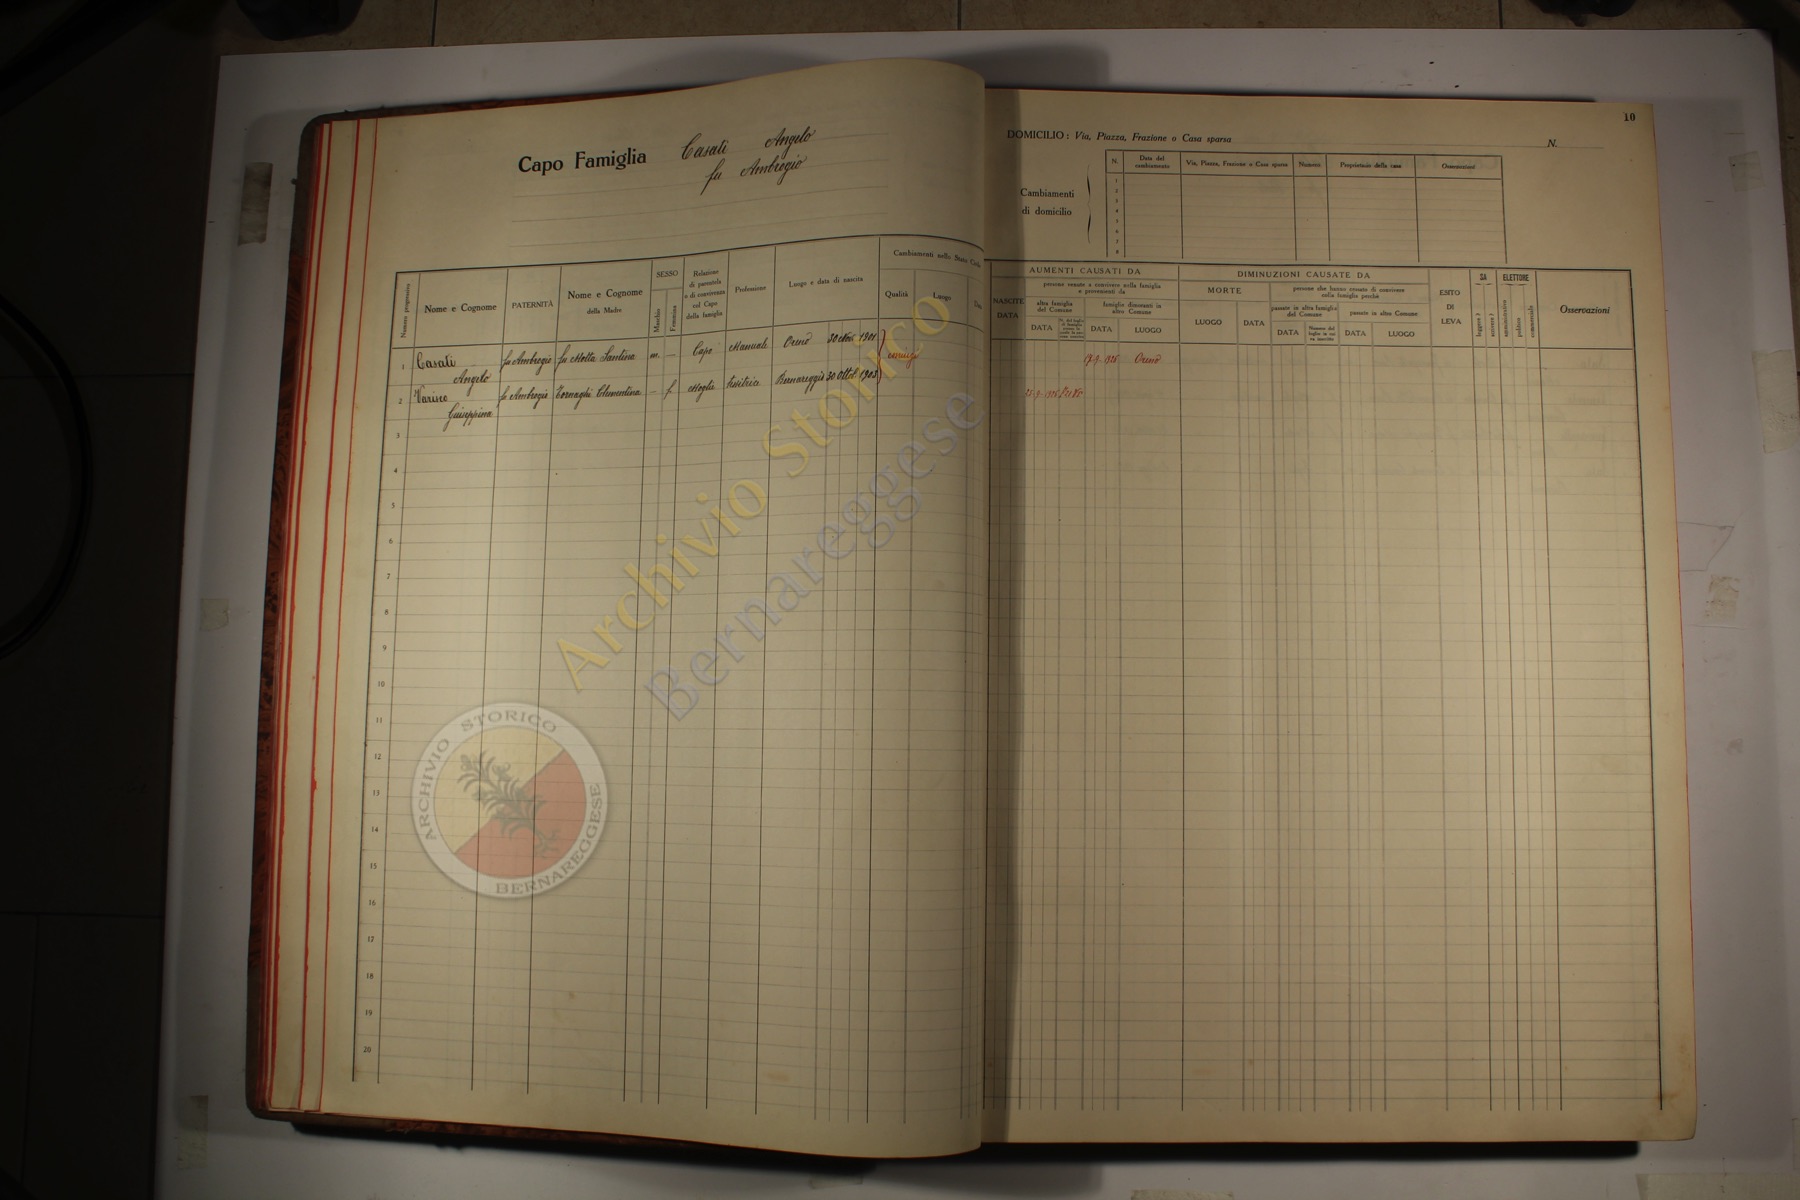 10
Capo Famiglia Casati Angelo
fu Ambrogio
DOMICILIO : Via, Piazza, Frazione o Casa sparsa N.
Cambiamenti
di domicilio
N. Data del cambiamento Via, Piazza, Frazione o Casa sparsa Numeri Proprietario della casa Osservazioni
1
2
3
4
5
6
7
8
Numero progressivo
Nome e Cognome
PATERNITÀ
Nome e Cognome
della Madre
SESSO
Maschio
Femmina
Relazione
di parentela
o di convivenza
col Capo
della famiglia
Professione
Luogo e data di nascita
Cambiamenti nello Stato Civile
Qualità
Luogo
AUMENTI CAUSATI DA
NASCITE
DATA
persone venute a convivere nella famiglia
e provenienti da
altra famiglia
del Comune
DATA
famiglie dimoranti in
altro Comune
DATA
LUOGO
DIMINUZIONI CAUSATE DA
MORTE
LUOGO
DATA
persone che hanno cessato di convivere
nella famiglia perchè
passate in altra famiglia
del Comune
DATA
passate in altro Comune
DATA
LUOGO
ESITO
DI
LEVA
SA
leggere ?
scrivere ?
ELETTORE
amministrativo
politico
commerciale
Osservazioni
1 Casati fu Ambrogio fu Motta Santina m. — Capo Manuale 1901 coniugi
Angelo
2 Varisco fu Ambrogio Tornaghi Clementina — f. Moglie tessitrice Bernareggio 30 Ottob. 1903
Giuseppina
3
4
5
6
7
8
9
10
11
12
13
14
15
16
17
18
19
20
Archivio Storico
Bernareggese
ARCHIVIO STORICO
BERNAREGGESE